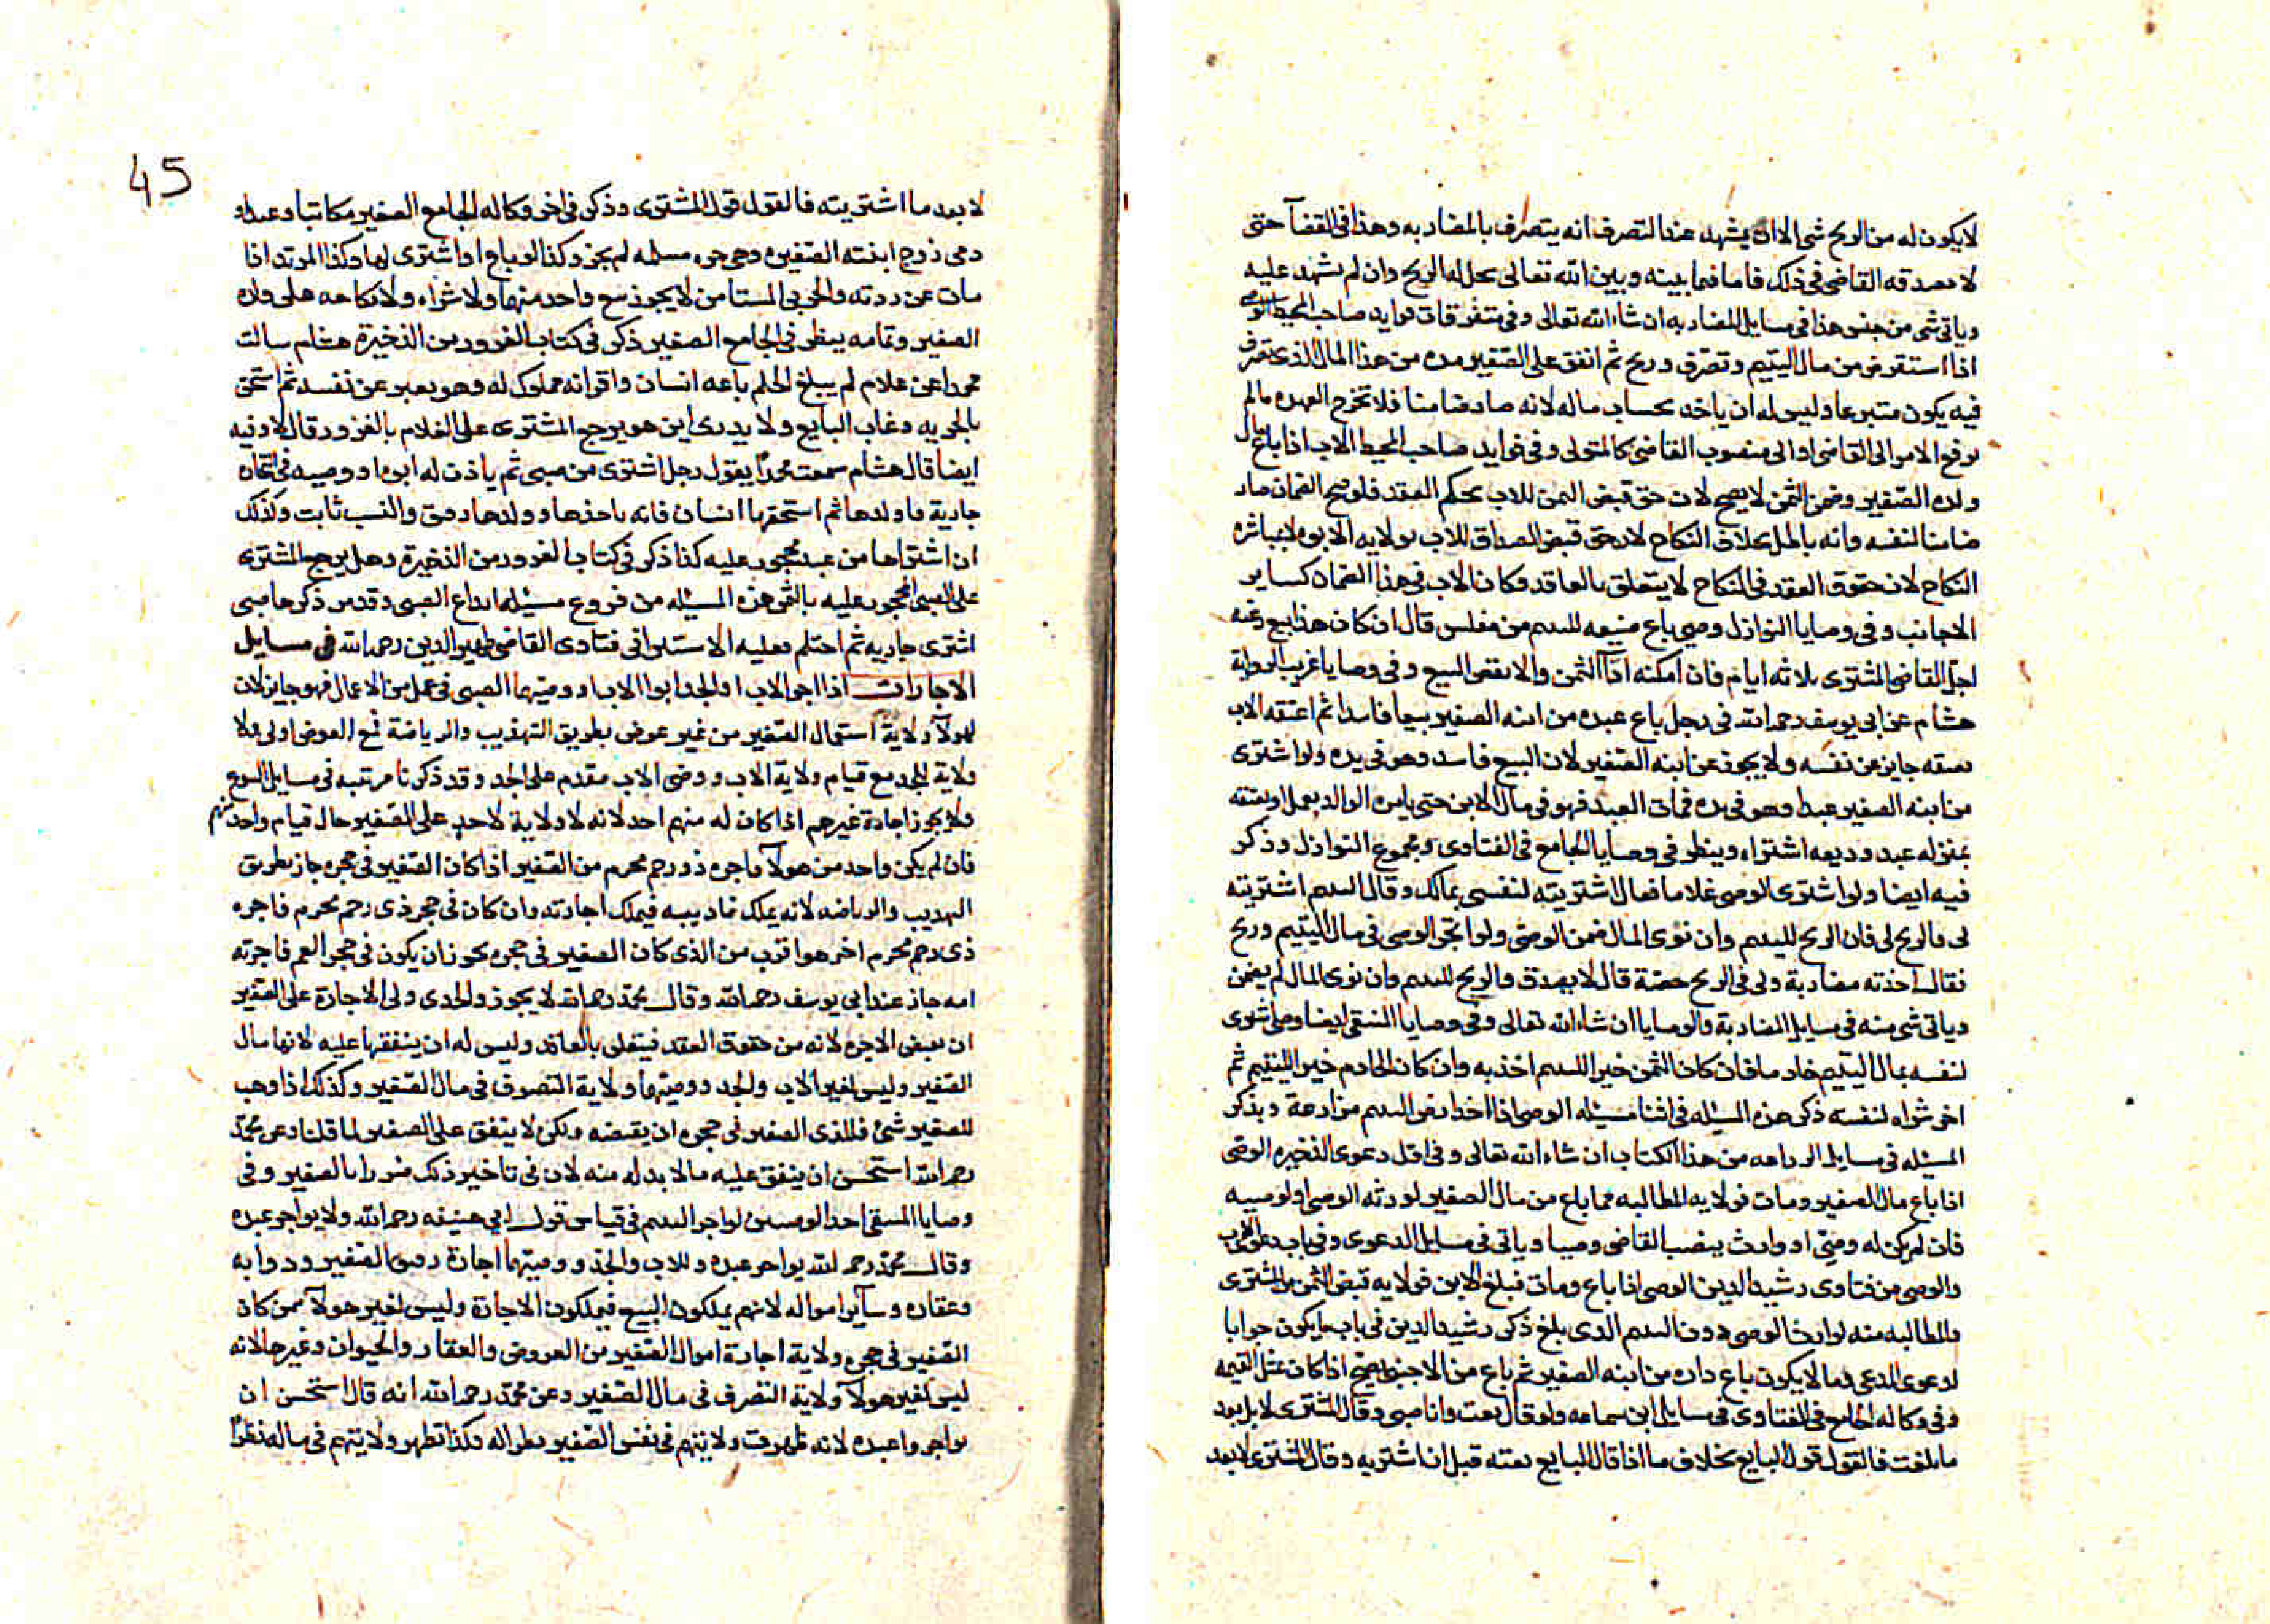 لا يكون له من الربح شى الا ان يشهد عند التصرف انه يتصرف بالمضاربه وهذا فى القضآ حتى
لا يصدقه القاضى فى ذلك فاما فيما بينه وبين الله تعالى يحل له الربح وان لم يشهد عليه
وياتى شى من جنس هذا فى مسايل المضاربه ان شاء الله تعالى وفى متفرقات فوايد صاحب المحيط
اذا استقرض من مال اليتيم وتصرف وربح ثم انفق على الصغير مده من هذا المال الذى تصرف
فيه يكون متبرعا وليس له ان ياخذ بحساب ماله لانه صار ضامنا فلا تخرج العهده مالم
يرفع الامر الى القاضى او الى منصوب القاضى كالمتولى وفى فوايد صاحب المحيط الاب اذا باع مال
ولده الصغير وضمن الثمن لا يصح لان حق قبض الثمن للاب بحكم العقد فلو صح الضمان صار
ضامنا لنفسه وانه باطل بخلاف النكاح لان حق قبض الصداق للاب بولايه الابوه لا بمباشره
النكاح لان حقوق العقد فى النكاح لا يتعلق بالعاقد فكان الاب فى هذا الضمان كساير
الاجانب وفى وصايا النوازل وصى باع ضيعه لليتيم من مفلس قال ان كان هذا بيع رغبه
اجل القاضى المشترى ثلاثه ايام فان امكنه اداآ الثمن والا نقض البيع وفى وصايا غريب الروايه
هشام عن ابى يوسف رحمه الله فى رجل باع عبده من ابنه الصغير بيعا فاسدا ثم اعتقه الاب
بعتقه جايز عن نفسه ولا يجوز عن ابنه الصغير لان البيع فاسد وهو فى يده ولو اشترى
من ابنه الصغير عبدا وهو فى يده فمات العبد فهو فى مال الابن حتى يامره الوالد بعمل او يعتقه
بمنزله عبد وديعه اشتراه وينظر فى وصايا الجامع فى الفتاوى ومجموع النوازل وذكر
فيه ايضا ولو اشترى الوصى غلاما فقال اشتريته لنفسى بمالك وقال اليتيم اشتريته
لى فالربح لى فان الربح لليتيم وان نوى المال ضمن الوصى ولو اتجر الوصى فى مال اليتيم وربح
فقال اخذته مضاربة ولى فى الربح حصة قال لا يصدق والربح لليتيم وان نوى المال لم يضمن
وياتى شى منه فى مسايل المضاربة والوصايا ان شاء الله تعالى وفى وصايا النسفى ايضا وصى اشترى
لنفسه بمال اليتيم خادما فان كان الثمن خيرا لليتيم اخذ به وان كان الخادم خير لليتيم ثم
اخر شراه لنفسه ذكر هذه المسئله فى اثنا مسئله الوصى اذا اخذ ارض اليتيم مزارعة ويذكر
المسئله فى مسايل المزارعه من هذا الكتاب ان شاء الله تعالى وفى اقل دعوى الذخيره الوصى
اذا باع مال الصغير ومات فولايه المطالبه مما باع من مال الصغير لورثه الوصى او لوصيه
فان لم يكن له وصى او وارث ينصب القاضى وصيا وياتى فى مسايل الدعوى وفى باب دعوى الاب
والوصى من فتاوى رشيد الدين الوصى اذا باع ومات فبلغ الابن فولايه قبض الثمن من المشترى
والمطالبه منه لوارث الوصى دون اليتيم الذى بلغ ذكر رشيد الدين فى باب ما يكون جوابا
لدعوى المدعى وما لا يكون باع داره من ابنه الصغير ثم باع من الاجنبى يصح اذا كان بمثل القيمه
وفى وكاله الجامع فى الفتاوى فى مسايل ابن سماعه ولو قال بعت وانا صبى وقال المشترى لا بل بعد
ما بلغت فالقول قول البايع بخلاف ما اذا قال البايع بعته قبل ان اشتريه وقال المشترى لا بعد
45
لا بعد ما اشتريته فالقول قول المشترى وذكر فى اخر وكاله الجامع الصغير مكاتبا وعبد او
ذمى زوج ابنته الصغيره وهى حره مسلمه لم يجز وكذا لو باع او اشترى لها وكذا المرتد اذا
مات عن ردته والحربى المستامن لا يجوز بيع واحد منهما ولا شراه ولا نكاحه على ولده
الصغير وتمامه ينظر فى الجامع الصغير ذكر فى كتاب الغرور من الذخيرة هشام سالت
محمدا عن غلام لم يبلغ الحلم باعه انسان واقر انه مملوك له وهو يعبر عن نفسه ثم استحق
بالحريه وغاب البايع ولا يدرى اين هو يرجع المشترى على الغلام بالغرور قال لا وفيه
ايضا قال هشام سمعت محمدا يقول رجل اشترى من صبى ثم ياذن له ابوه او وصيه فى التجاره
جارية فاولدها ثم استحقها انسان فانه ياخذها وولدها رقيق والنسب ثابت وكذلك
ان اشتراها من عبد محجور عليه كذا ذكر فى كتاب الغرور من الذخيرة وهل يرجع المشترى
على الصبى المحجور عليه بالثمن هذه المسئله من فروع مسئله ايداع الصبى وقد مر ذكرها صبى
اشترى جاريه ثم احتلم فعليه الاستبرا فى فتاوى القاضى ظهير الدين رحمه الله فى مسايل
الاجارات اذا اجر الاب او الجد ابو الاب او وصيهما الصبى فى عمل من الاعمال فهو جايز لان
لهولآ ولاية استعمال الصغير من غير عوض بطريق التهذيب والرياضة فمع العوض اولى ولا
ولاية للجد مع قيام ولاية الاب ووصى الاب مقدم على الجد وقد ذكرنا مرتبه فى مسايل البيوع
ولا يجوز اجارة غيرهم اذا كان له منهم احد لانه لا ولاية لاحد على الصغير حال قيام واحد منهم
فان لم يكن واحد من هولآ فاجره ذو رحم محرم من الصغير اذا كان الصغير فى حجره جاز بطريق
التهذيب والرياضه لانه يملك تاديبه فيملك اجارته وان كان فى حجر ذى رحم محرم فاجره
ذى رحم محرم اخر هو اقرب من الذى كان الصغير فى حجره نحو ان يكون فى حجر العم فاجرته
امه جاز عند ابى يوسف رحمه الله وقال محمد رحمه الله لا يجوز وللذى ولى الاجارة على الصغير
ان يقبض الاجره لانه من حقوق العقد فيتعلق بالعاقد وليس له ان ينفقها عليه لانها مال
الصغير وليس لغير الاب والجد ووصيهما ولاية التصرف فى مال الصغير وكذلك اذا وهب
للصغير شئ فللذى الصغير فى حجره ان يقبضه ولكن لا ينفق على الصغير لما قلنا وعن محمد
رحمه الله استحسن ان ينفق عليه مالا بد له منه لان فى تاخير ذلك ضررا بالصغير وفى
وصايا النسفى احد الوصيين لو اجر اليتيم فى قياس قول ابى حنيفه رحمه الله ولا يواجر عبده
وقال محمد رحمه الله يواجر عبده وللاب والجد ووصيهما اجارة رقيق الصغير ودوابه
وعقاره وساير امواله لانهم يملكون البيع فيملكون الاجارة وليس لغير هولآ ممن كان
الصغير فى حجره ولاية اجارة اموال الصغير من العروض والعقار والحيوان وغيرها لانه
ليس لغير هولآ ولاية التصرف فى مال الصغير وعن محمد رحمه الله انه قال استحسن ان
يواجروا عبده لانه ظهرت ولايتهم فى نفس الصغير نظرا له وكذا تظهر ولايتهم فى ماله نظرا